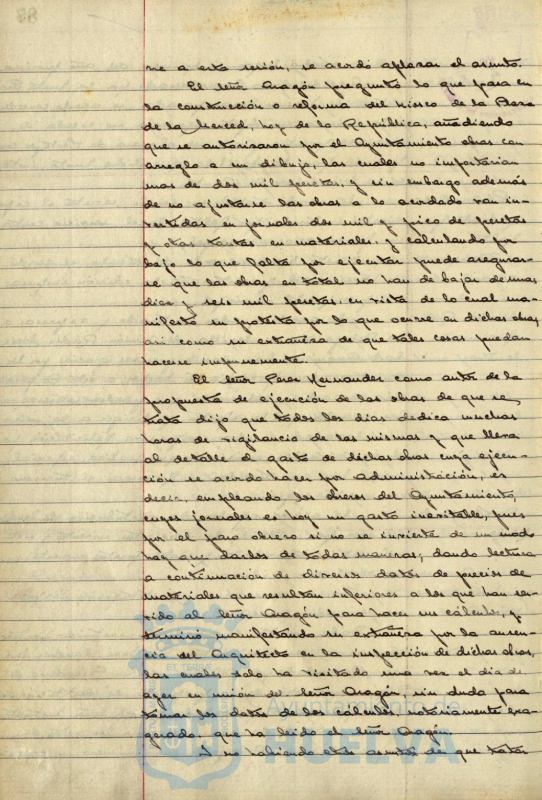 ne a esta sesión, se acordó aplazar el asunto.
El señor Aragón preguntó lo que pasa en
la construcción o reforma del kiosco de la Plaza
de la Merced, hoy de la República, añadiendo
que se autorizaron por el Ayuntamiento obras con
arreglo a un dibujo, las cuales no importarian
mas de dos mil pesetas, y sin embargo además
de no ajustarse las obras a lo acordado van in-
vertidas en jornales dos mil y pico de pesetas
y otras tantas en materiales, y calculando por
bajo lo que falta por ejecutar puede asegurar-
se que las obras en total no han de bajar de unas
diez y seis mil pesetas, en vista de lo cual ma-
nifestó su protesta por lo que ocurre en dichas obras,
asi como su extrañeza de que tales cosas puedan
hacerse impunemente.
El señor Perez Hernandez como autor de la
propuesta de ejecución de las obras de que se
trata dijo que todos los dias dedica muchas
horas de vigilancia de las mismas y que lleva
al detalle el gasto de dichas obras cuya ejecu-
ción se acordó hacer por administración, es
decir, empleando los obreros del Ayuntamiento,
cuyos jornales es hoy un gasto inevitable, pues
por el paro obrero si no se invierte de un modo
hay que darlos de todas maneras; dando lectura
a continuación de diversos datos de precios de
materiales que resultan inferiores a los que han ser-
vido al señor Aragón para hacer sus cálculos, y
terminó manifestando su extrañeza por la ausen-
cia del Arquitecto en la inspección de dichas obras,
las cuales solo ha visitado una vez el dia de
ayer en unión de señor Aragón, sin duda para
tomar los datos de los cálculos, notoriamente exa-
gerado, que ha leido el señor Aragón.
Y no habiendo otros asuntos de que tratar
Ayuntamiento de
HUELVA